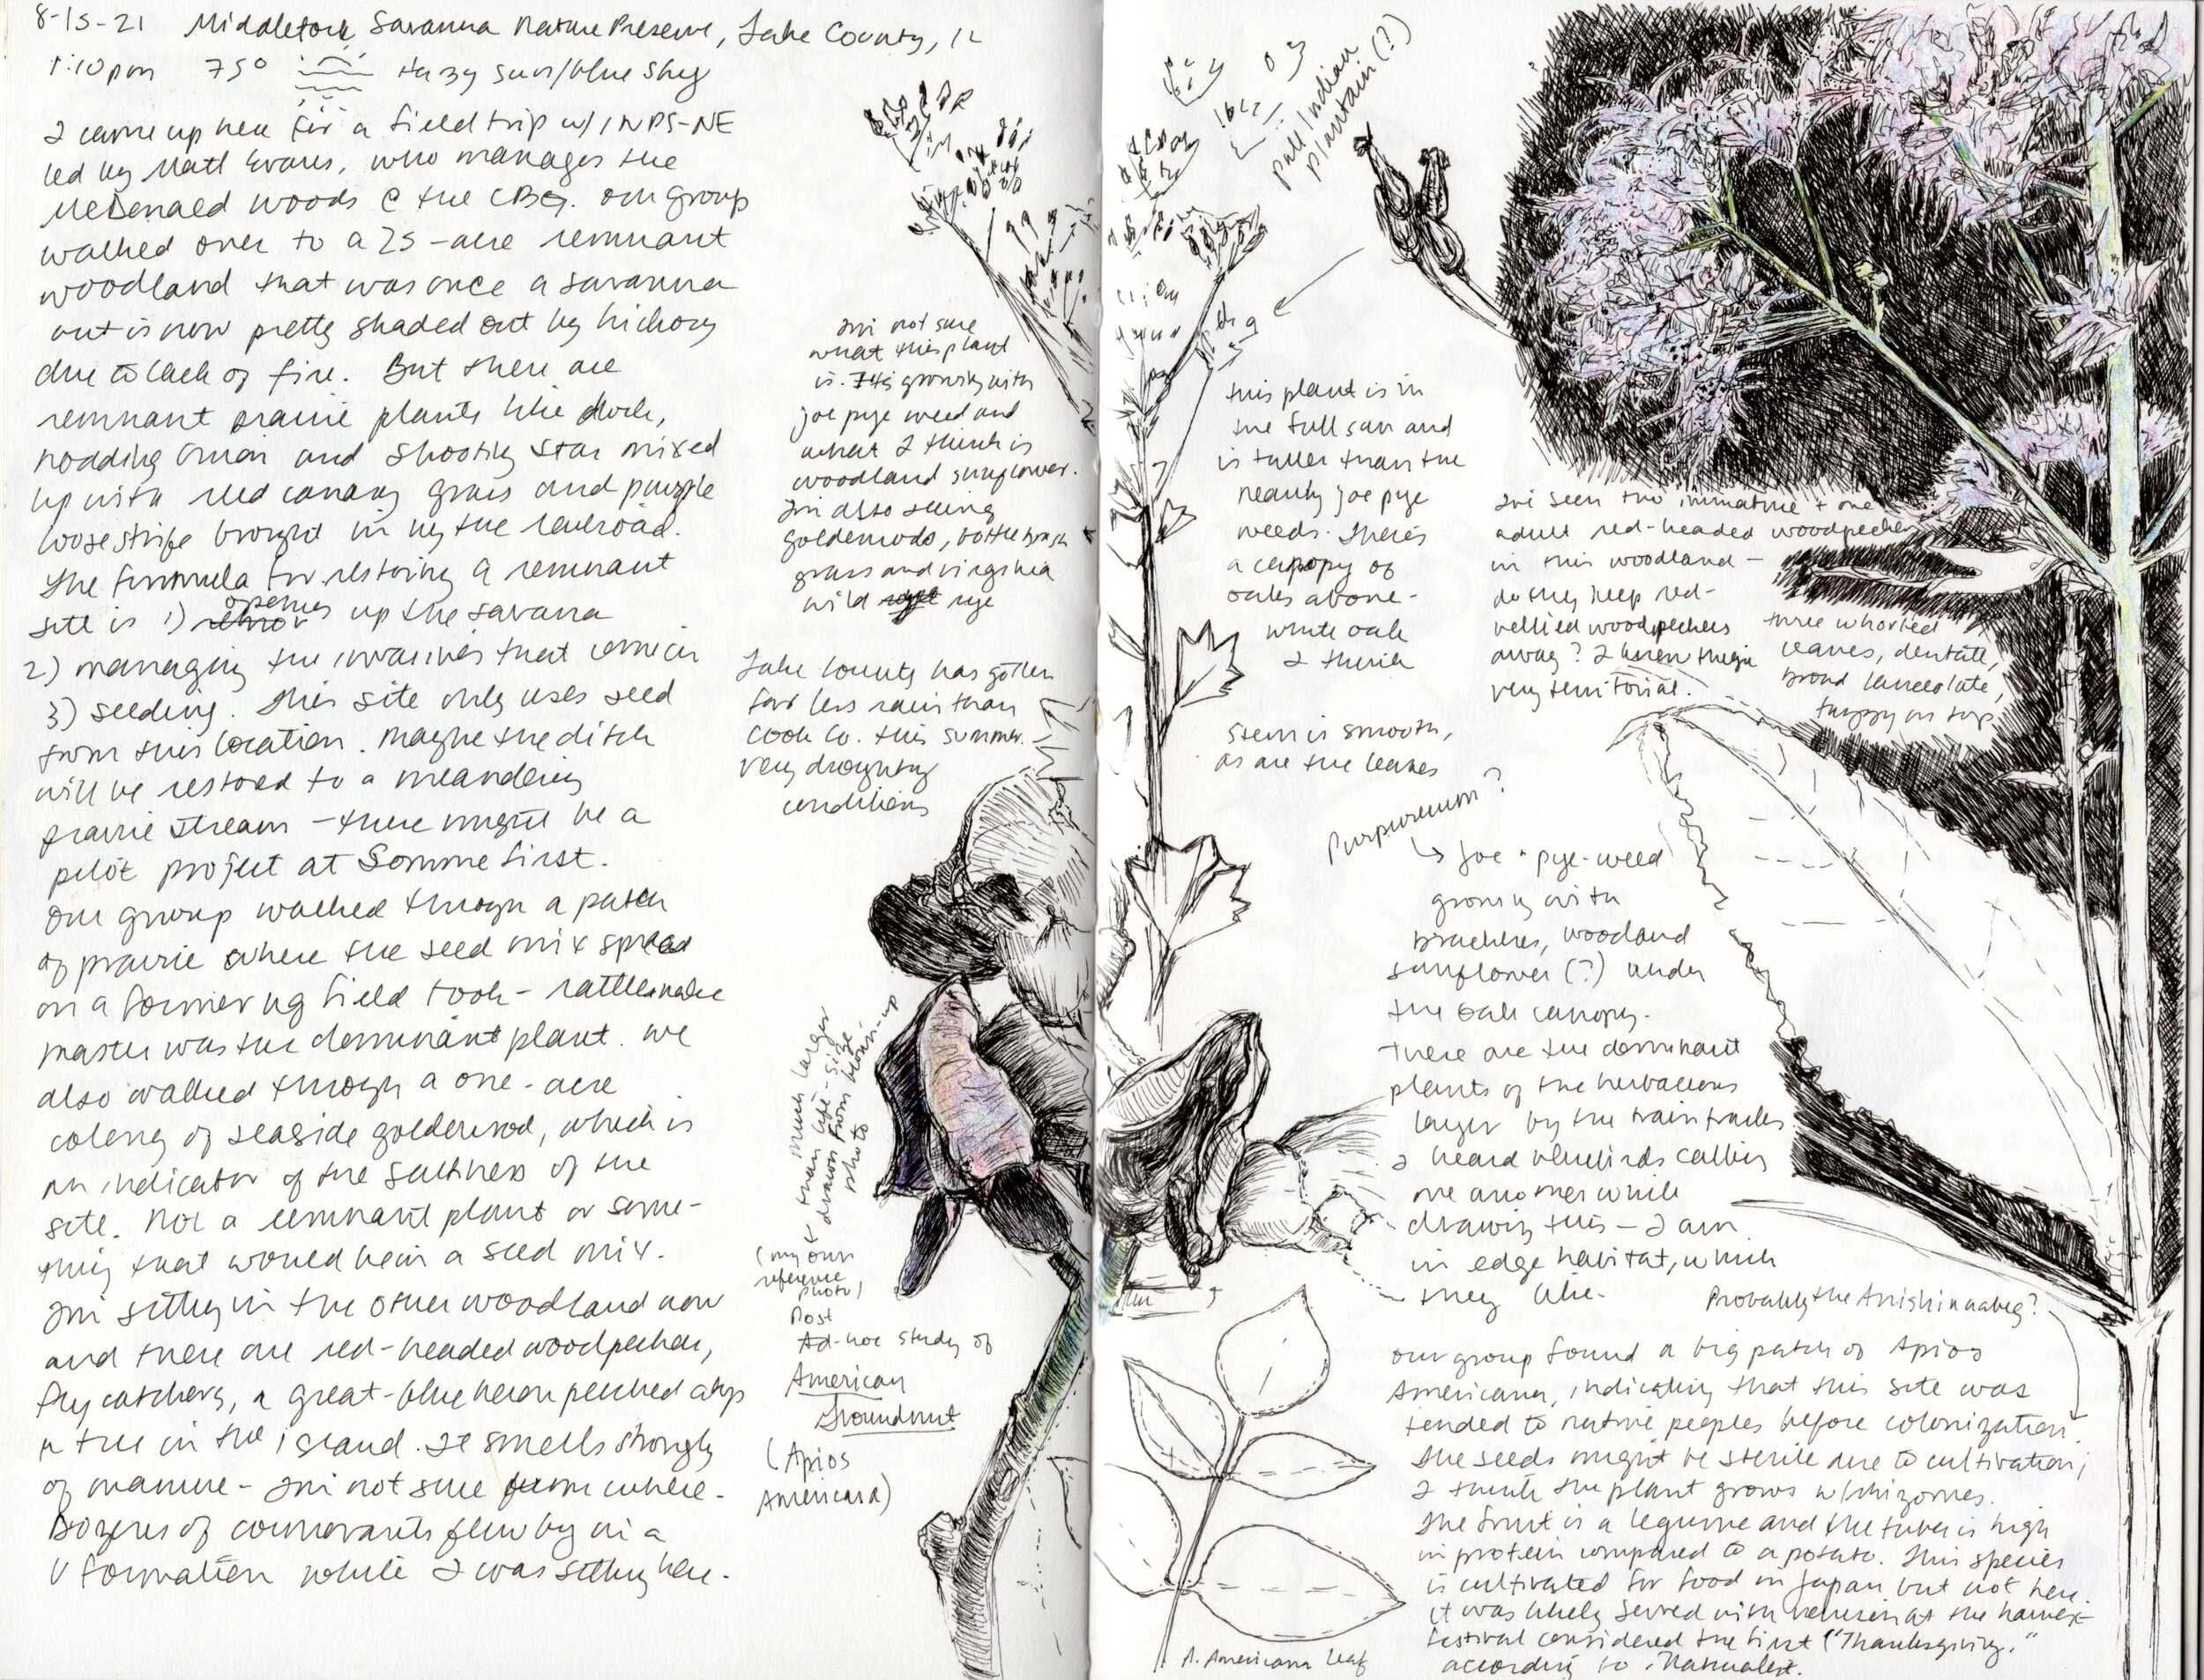 8-15-21 Middlefork Savanna Nature Preserve, Lake County, IL
1:10pm 75° Hazy sun/blue sky
I came up here for a field trip w/ INPS-NE
led by Matt Evans, who manages the
McDonald woods @ the CBG. Our group
walked over to a 25-acre remnant
woodland that was once a savanna
but is now pretty shaded out by hickory
due to lack of fire. But there are
remnant prairie plants like dock,
nodding onion and shooting star mixed
up with reed canary grass and purple
loosestrife brought in by the railroad.
The formula for restoring a remnant
site is 1) opening up the savana
2) managing the invasives that come in
3) seeding. This site only uses seed
from this location. Maybe the ditch
will be restored to a meandering
prairie stream - there might be a
pilot project at Somme first.
Our group walked through a patch
of prairie where the seed mix spread
on a former ag field took - rattlesnake
master was the dominant plant. We
also walked through a one-acre
colony of seaside goldenrod, which is
an indicator of the saltiness of the
site. Not a remnant plant or some-
thing that would be in a seed mix.
I'm sitting in the other woodland now
and there are red-headed woodpeckers,
fly catchers, a great-blue heron perched atop
a tree in the island. It smells strongly
of manure - I'm not sure from where.
Dozens of cormorants flew by in a
V formation while I was sitting here.
I'm not sure
what this plant
is. It's growing with
joe pye weed and
what I think is
woodland sunflower.
I'm also seeing
goldenrods, bottlebrush
grass and virginia
wild rye
Lake County has gotten
far less rain than
Cook Co. this summer.
very droughty
conditions
much larger
than life-size -
drawn from blown-up
photo
(my own
reference
photo)
Post
Ad-hoc study of
American
Groundnut
(Apios
Americana)
pale Indian
plantain (?)
this plant is in
the full sun and
is taller than the
nearby joe pye
weeds. There's
a canopy of
oaks above -
white oak
I think
stem is smooth,
as are the leaves
I've seen two immature + one
adult red-headed woodpecker
in this woodland -
do they keep red-
bellied woodpeckers
away? I know they're
very territorial.
three whorled
leaves, dentate,
broad lanceolate,
bumpy on top
Purpureum?
Joe-pye-weed
growing with
burdches, woodland
sunflower (?) under
the oak canopy.
These are the dominant
plants of the herbaceous
layer by the train tracks
I heard bluebirds calling
one another while
drawing this - I am
in edge habitat, which
they like.
Probably the Anishinaabeg?
Our group found a big patch of Apios
Americana, indicating that this site was
tended to native peoples before colonization.
The seeds might be sterile due to cultivation;
I think the plant grows w/ rhizomes.
The fruit is a legume and the tuber is high
in protein compared to a potato. This species
is cultivated for food in Japan but not here.
It was likely served with venison at the harvest
festival considered the first "Thanksgiving,"
according to iNaturalist.
A. Americana leaf